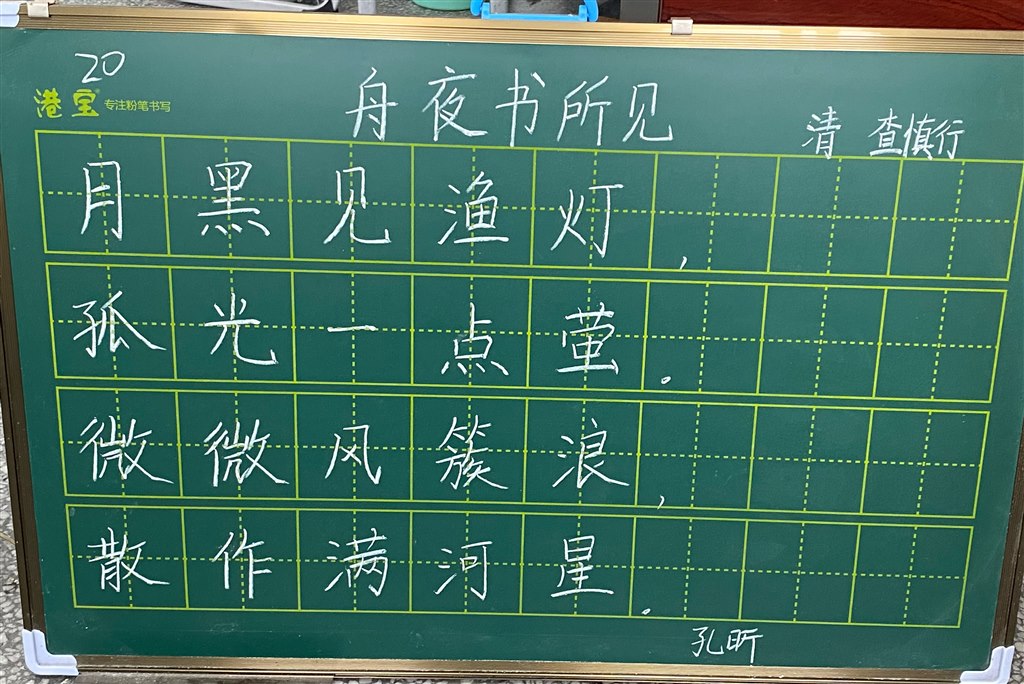 20
港宝 专注粉笔书写
舟夜书所见
清 查慎行
月黑见渔灯,
孤光一点萤。
微微风簇浪,
散作满河星.
孔昕